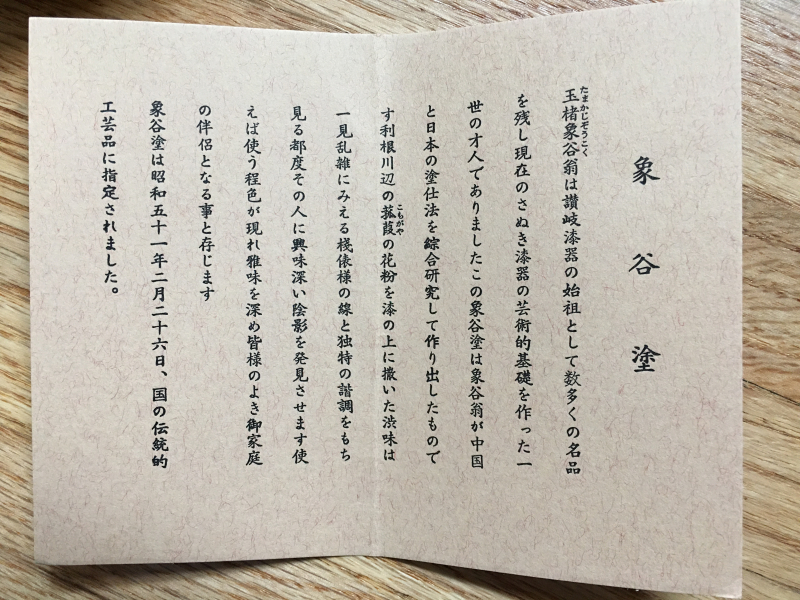 象谷塗
玉楮象谷翁は讃岐漆器の始祖として数多くの名品
を残し現在のさぬき漆器の芸術的基礎を作った一
世の才人でありましたこの象谷塗は象谷翁が中国
と日本の塗仕法を綜合研究して作り出したもので
す利根川辺の菰葭の花粉を漆の上に撒いた渋味は
一見乱雑にみえる棧俵様の線と独特の諧調をもち
見る都度その人に興味深い陰影を発見させます使
えば使う程色が現れ雅味を深め皆様のよき御家庭
の伴侶となる事と存じます
象谷塗は昭和五十一年二月二十六日、国の伝統的
工芸品に指定されました。
たまかじぞうこく
こもがや